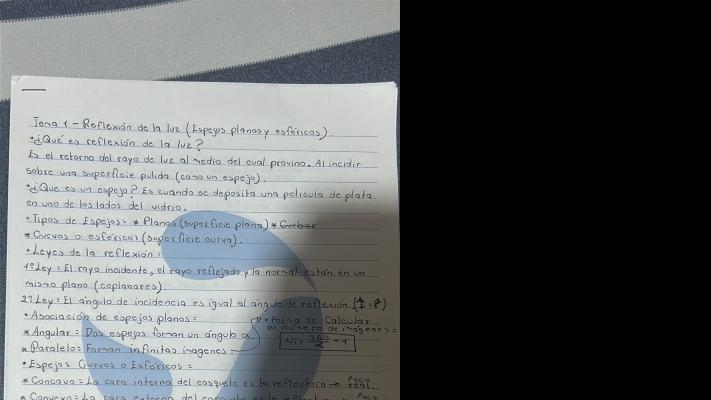 Tema 1 - Reflexión de la luz (Espejos planos y esféricos).
• ¿Qué es reflexión de la luz?
Es el retorno del rayo de luz al medio del cual provino. Al incidir
sobre una superficie pulida (como un espejo).
• ¿Que es un espejo? Es cuando se deposita una película de plata
en uno de los lados del vidrio.
• Tipos de Espejos = * Planos (superficie plana) * Curbos
* Curvos o esféricos (superficie curva).
• Leyes de la reflexión =
1º Ley = El rayo incidente, el rayo reflejado y la normal están en un
mismo plano (coplanares).
2º Ley = El ángulo de incidencia es igual al ángulo de reflexión (î = r̂)
• Asociación de espejos planos = • Forma de Calcular
el número de imágenes =
* Angular = Dos espejos forman un ángulo α
Ni = 360/α - 1
* Paralelo = Forman infinitas imagenes
• Espejos Curvos o Esféricos =
* Concavo = La cara interna del casquete es la reflectora → Foco real
* Convexo = La cara externa del casquete es la Foco